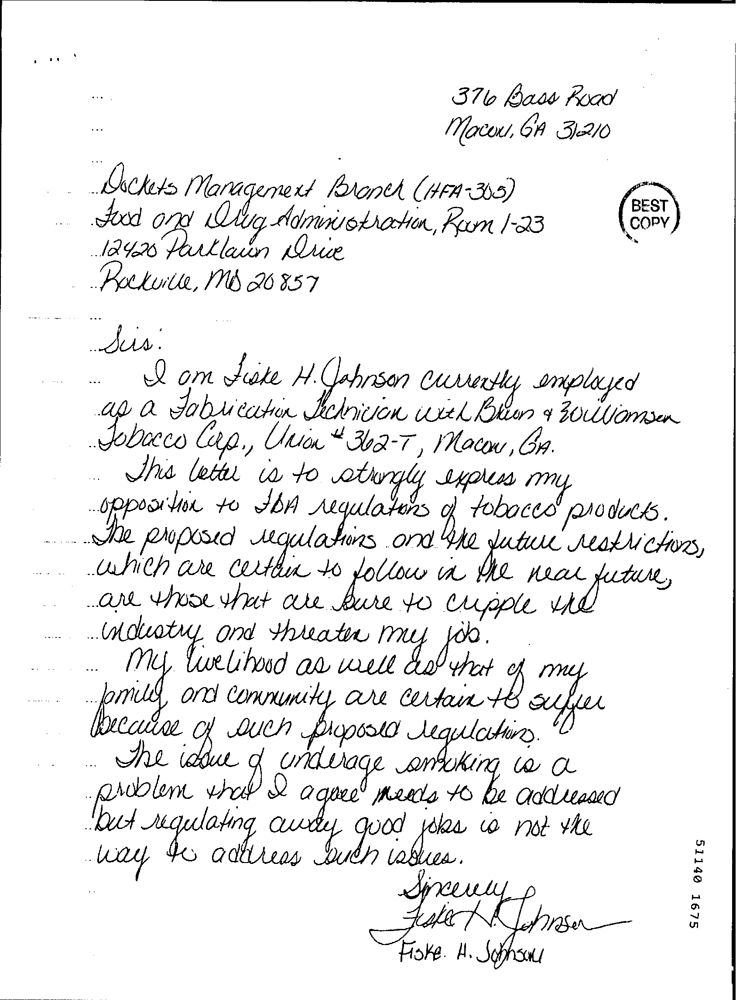 376 Bass Road
Macon, GA 31210
Dockets Management Branch (HFA-305)
Food and Drug Administration, Room 1-23
12420 Parklawn Drive
Rockville, MD 20857
BEST
COPY
Sirs:
I am Fiske H. Johnson currently employed
as a Fabrication Technician with Brown & Williamson
Tobacco Corp., Union # 362-T, Macon, GA.
This letter is to strongly express my
opposition to FDA regulations of tobacco products.
The proposed regulations and the future restrictions,
which are certain to follow in the near future,
are those that are sure to cripple the
industry and threaten my job.
My livelihood as well as that of my
family and community are certain to suffer
because of such proposed regulations.
The issue of underage smoking is a
problem that I agree needs to be addressed
but regulating away good jobs is not the
way to address such issues.
Sincerely,
Fiske H. Johnson
Fiske. H. Johnson
51140 1675